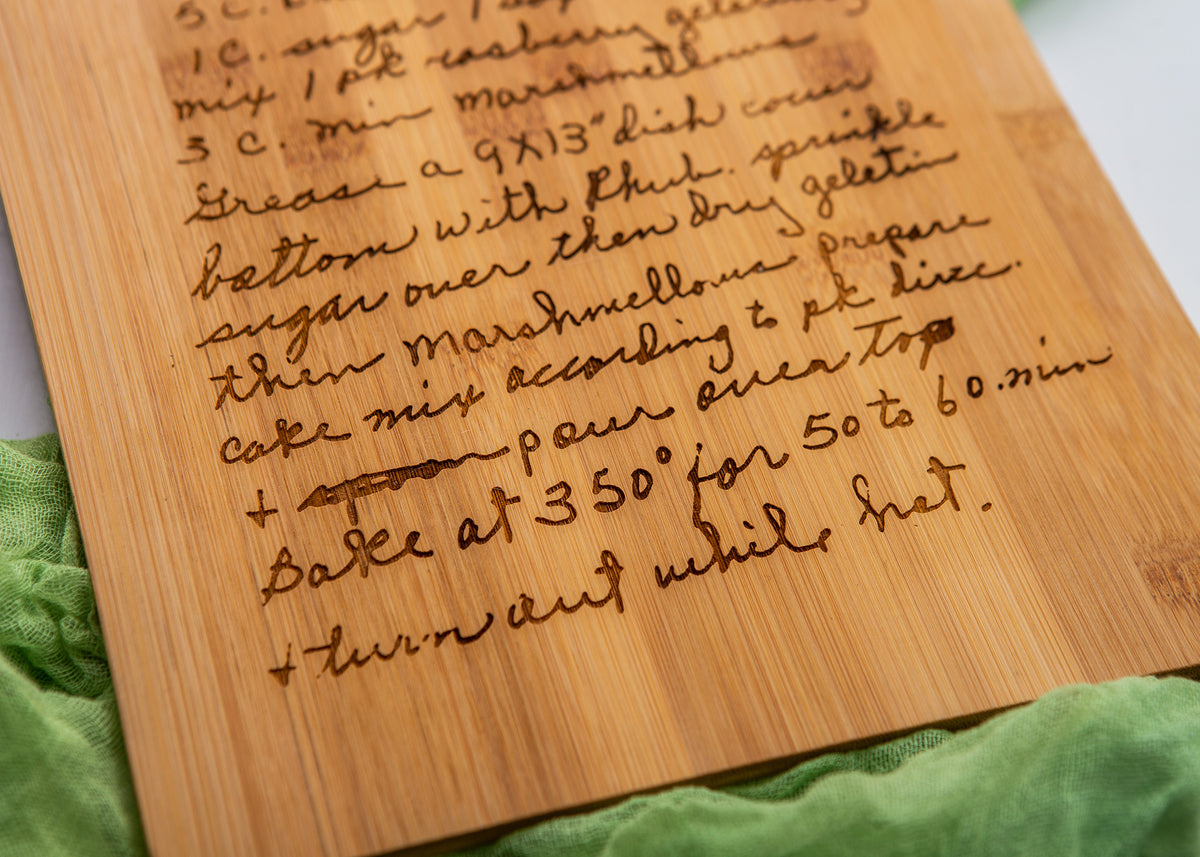 5 C.
1 C. sugar 1
mix 1 pk rasberry geletin
3 C. min marshmellows
Grease a 9X13" dish cover
bottom with Rhub. sprinkle
sugar over then dry geletin
then marshmellows prepare
cake mix according to pk direc.
+ pour over top
Bake at 350° for 50 to 60 min
+ turn out while hot.